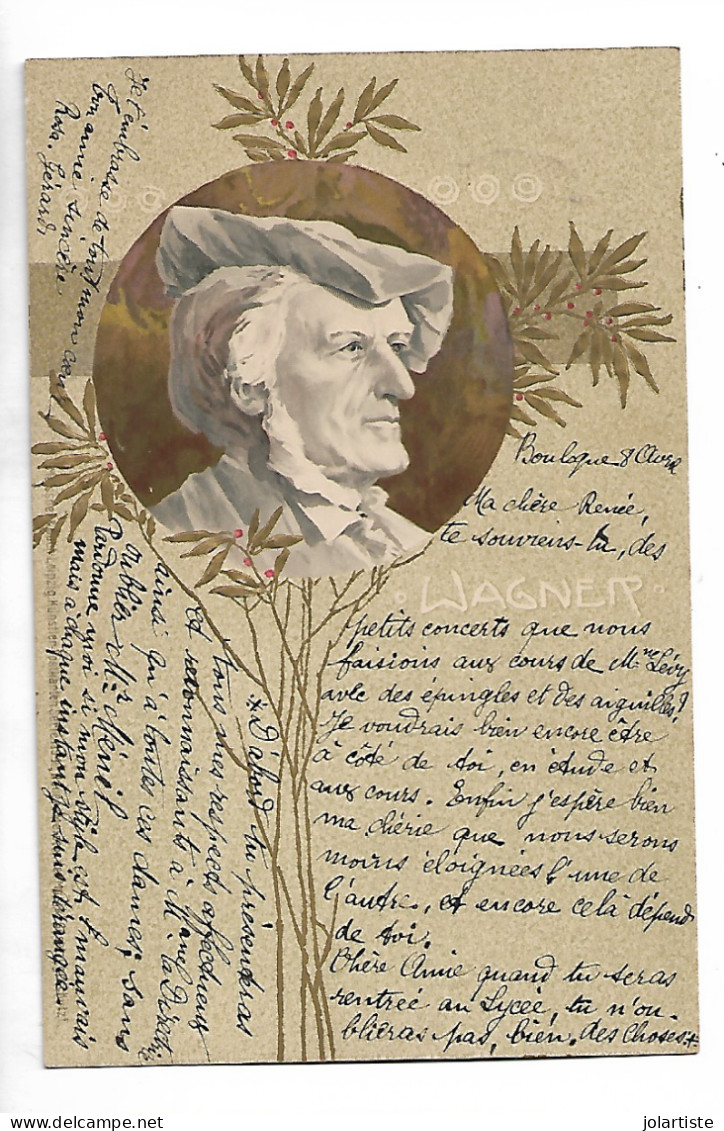 Boulogne 8 Avril
Ma chère Renée,
te souviens-tu, des
WAGNER
petits concerts que nous
faisions aux cours de Mme Lévy
avec des épingles et des aiguilles?
Je voudrais bien encore être
à côté de toi, en étude et
aux cours. Enfin j'espère bien
ma chérie que nous serons
moins éloignées l'une de
l'autre, et encore celà dépend
de toi.
Chère Amie quand tu seras
rentrée au Lycée, tu n'ou-
blieras pas, bien des choses.+
+D'abord tu présenteras
tous mes respects affectueux
et reconnaissants à Mme la Directrice
ainsi qu'à toutes ces dames, sans
oublier Mr Ménil
Pardonne moi si mon style est mauvais
mais à chaque instant je suis dérangée
Je t'embrasse de tout mon cœur
ton amie sincère
Rosa. Gérard,
jolartiste